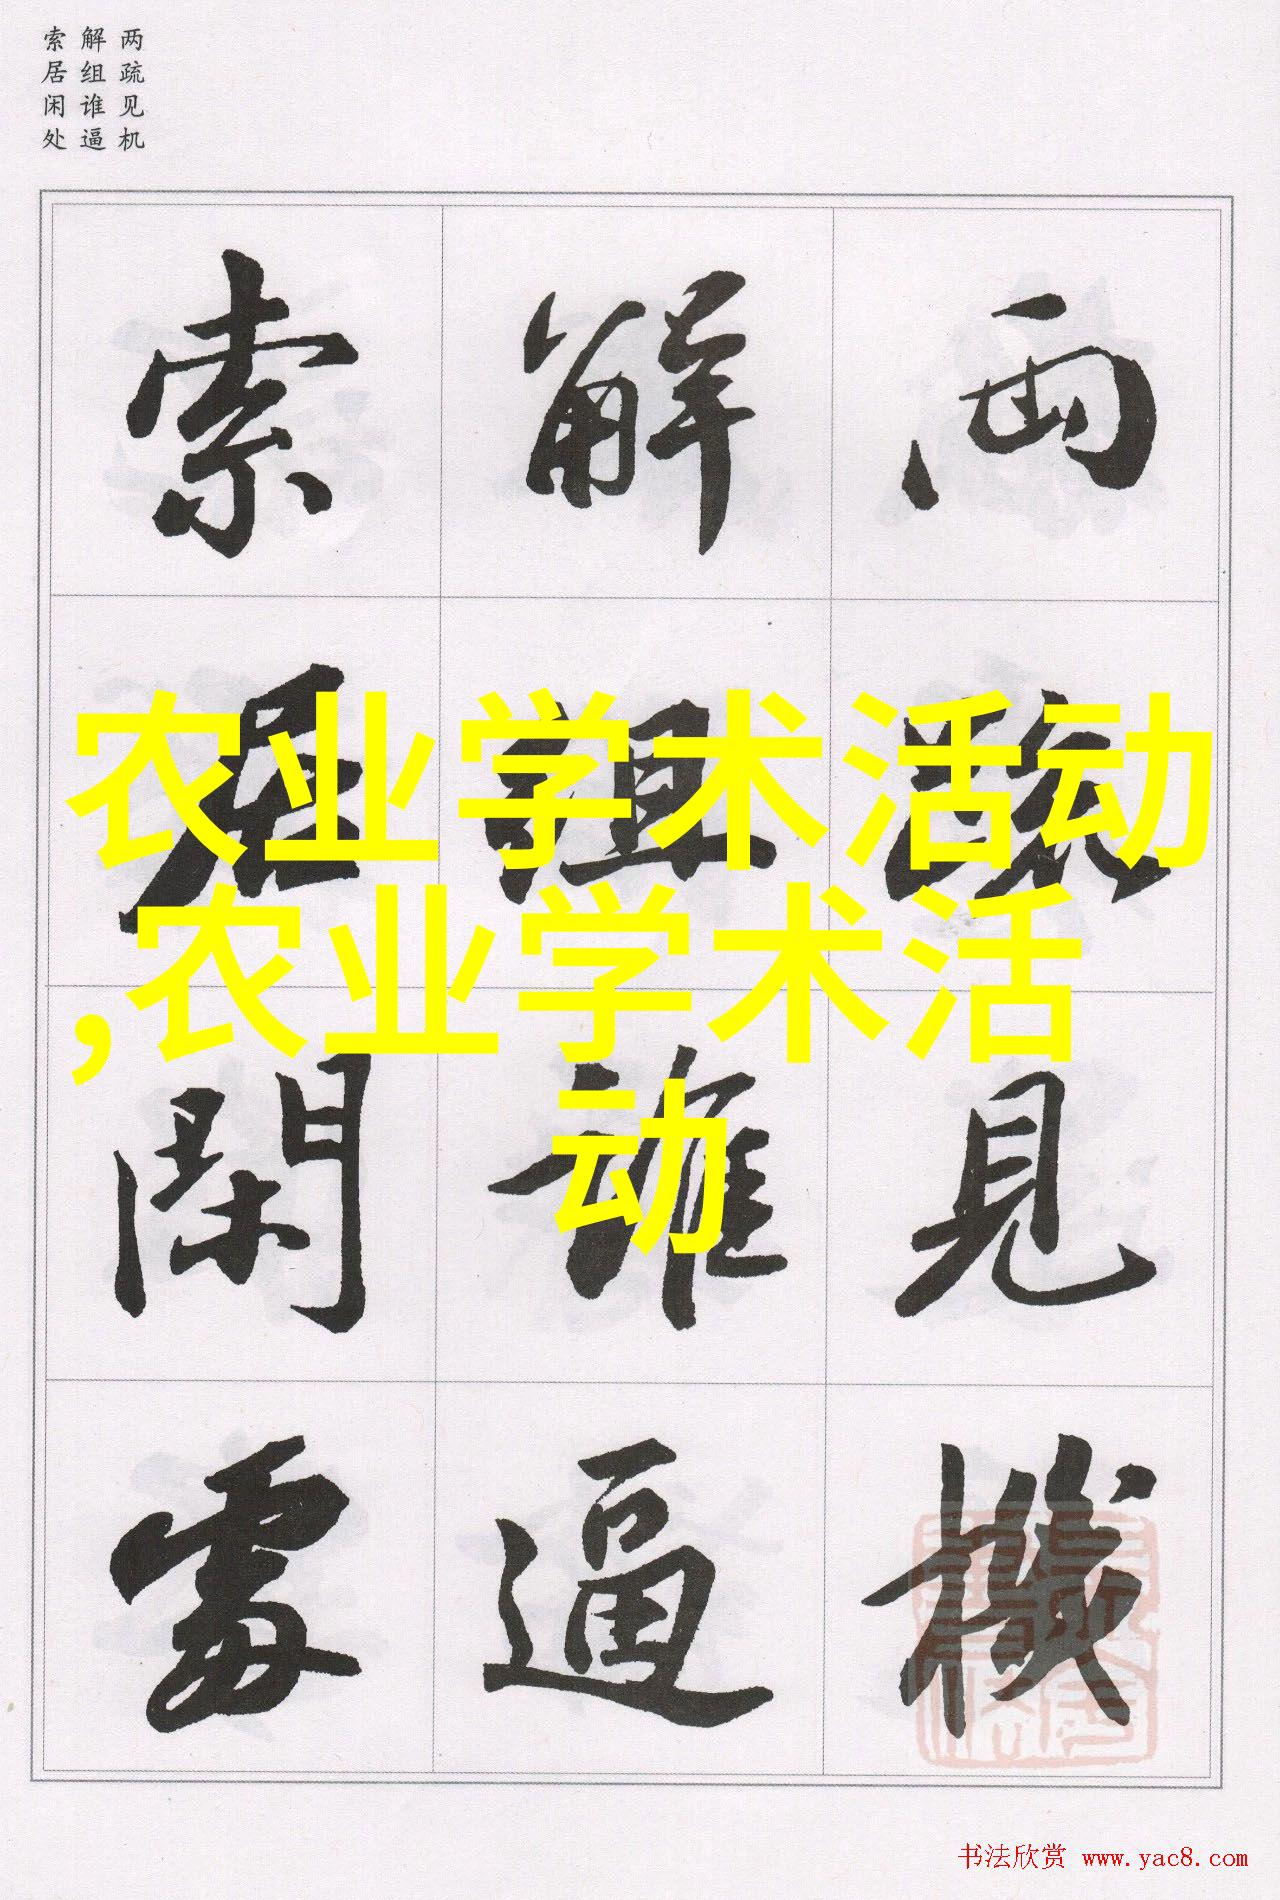 两疏见机
解组谁逼
索居闲处
兩疏見機
解組誰逼
索居閑處
农业学术活动
,农业学术活
动
书法欣赏 www.yac8.com